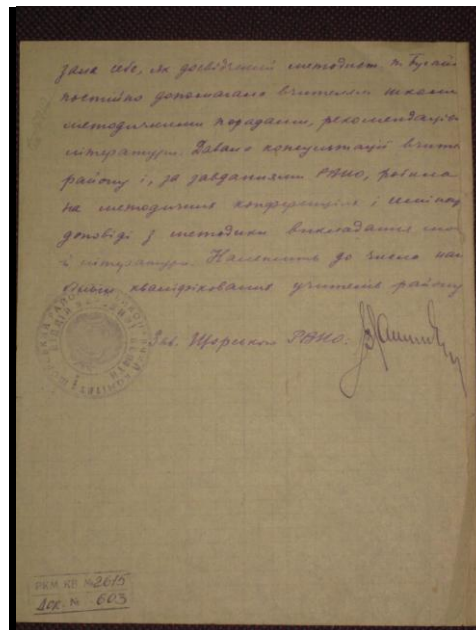 зала себе, як досвідчений методист. т. Бугай
постійно допомагала вчителям школи
методичними порадами, рекомендаціє
літератури. Давала консультації вчите
району і, за завданнями РАНО, робила
на методичних конференціях і семінар
доповіді з методики викладання мо
і літератури. Належить до числа най
більш кваліфікованих учителів району
Зав. Щорським РАНО:
РКМ КВ №2615
Док. № 603